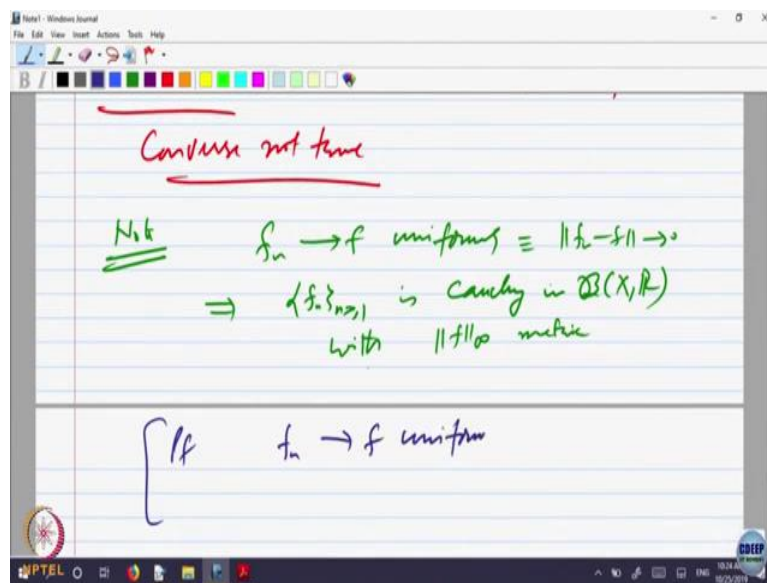 Note1 - Windows Journal
File Edit View Insert Actions Tools Help
B I
Converse not true
Note f_n → f uniformly ≡ ||f_n - f|| → 0
⇒ {f_n}_{n≥1} is Cauchy in B(X, R)
with ||f||_∞ metric
If f_n → f uniform
NPTEL
CDEEP
ENG
10:24 AM
10/25/2019